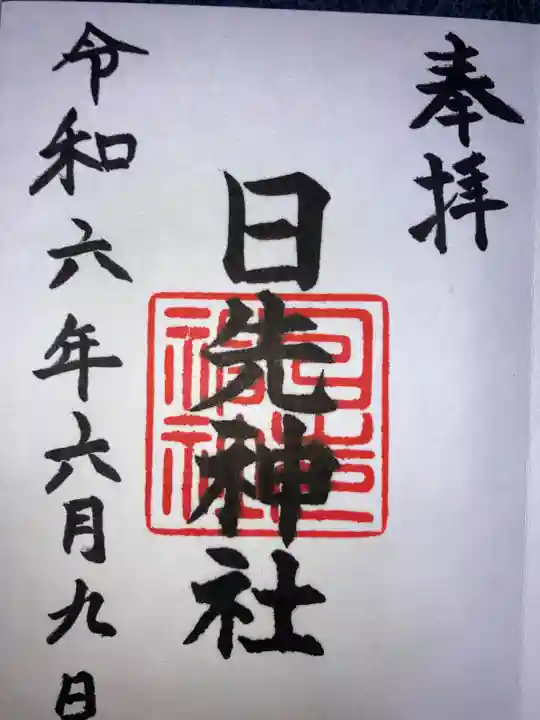 奉拝
日先神社
令和六年六月九日